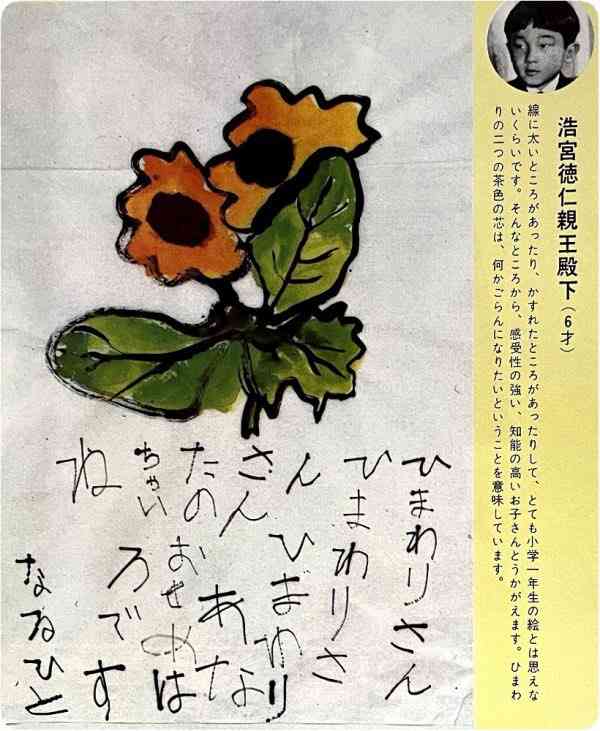 浩宮徳仁親王殿下(6才)
線に太いところがあったり、かすれたところがあったりして、とても小学一年生の絵とは思えな
いくらいです。そんなところから、感受性の強い、知能の高いお子さんとうかがえます。ひまわ
りの二つの茶色の芯は、何かごらんになりたいということを意味しています。
ひまわりさん
ひまわりさ
ん ひまわり
さん あな
たの は
ちゃいろです
ね
なるひと